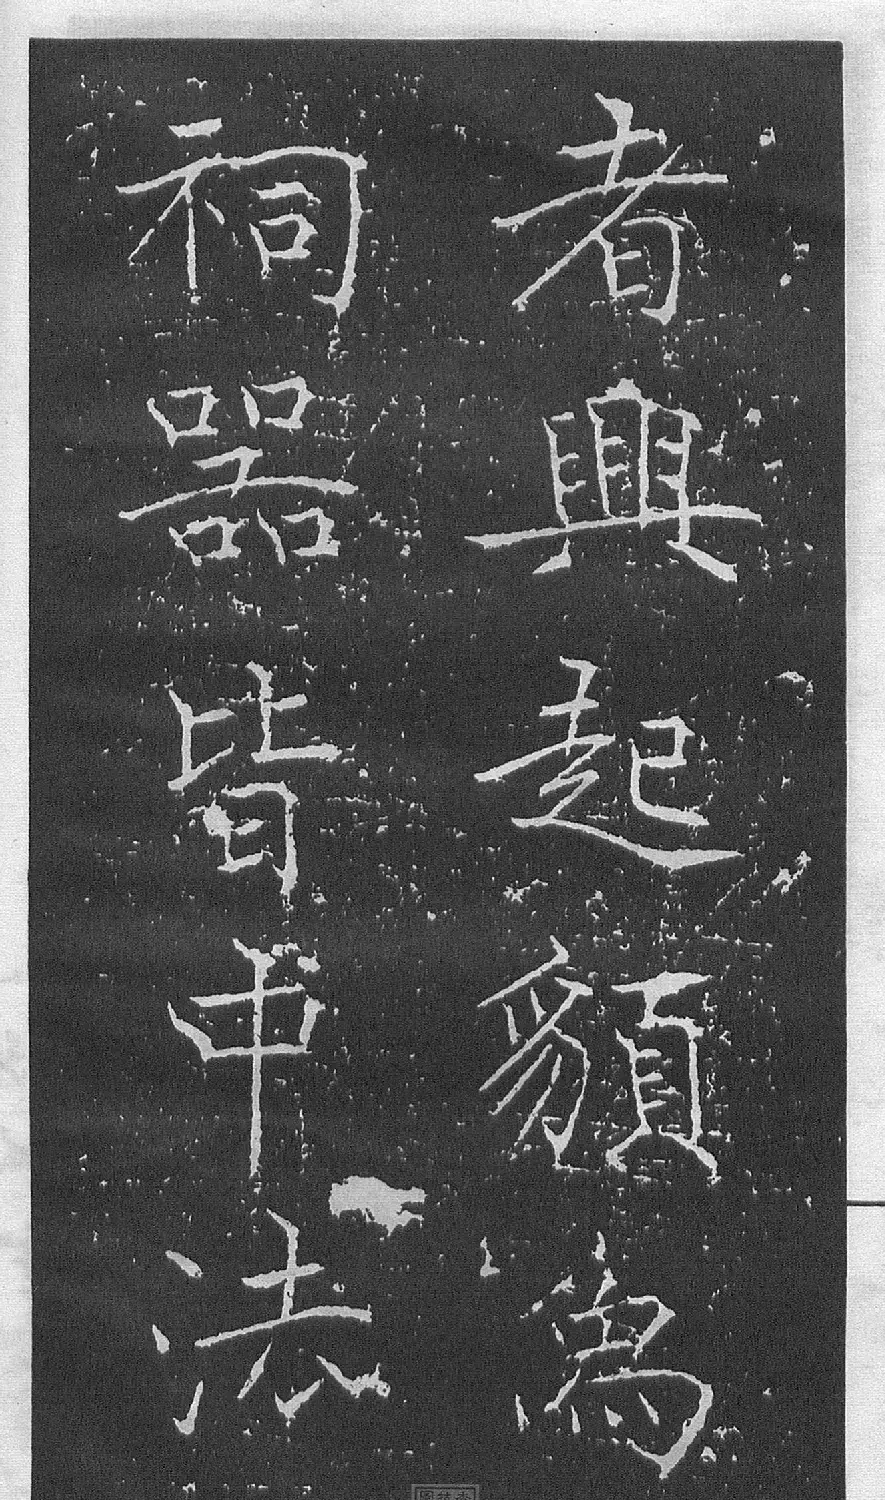 者興起䫉為
祠器皆中法